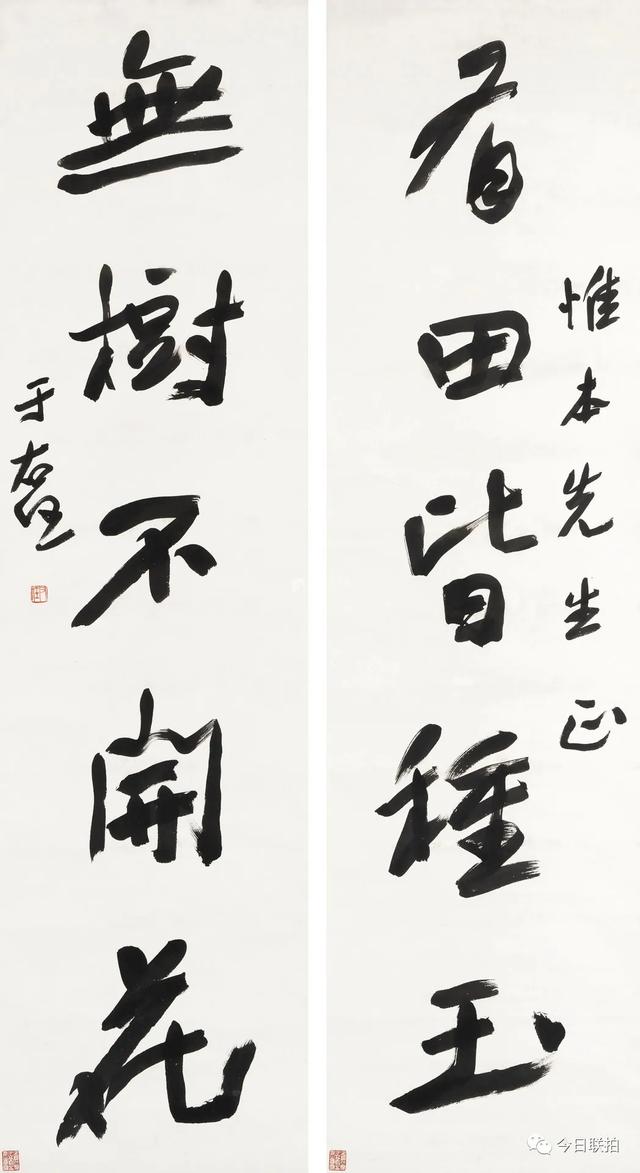 有田皆種玉
惟本先生正
無樹不開花
于右任
今日联拍